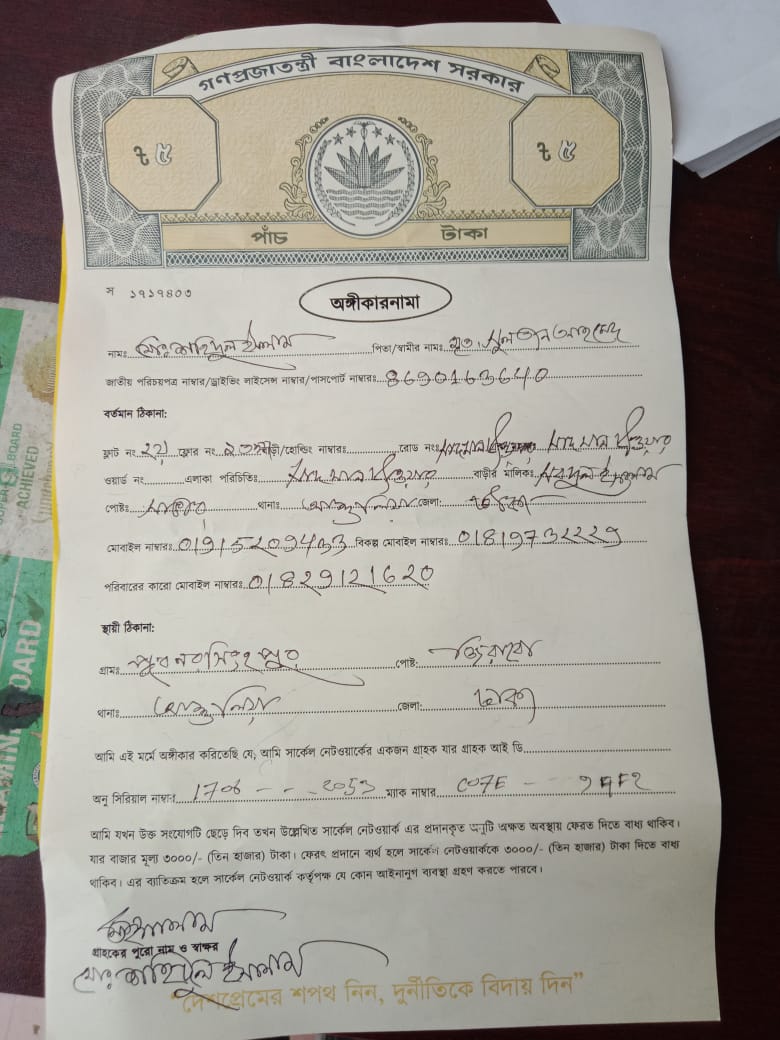 গণপ্রজাতন্ত্রী বাংলাদেশ সরকার
৳ ৫ ৳ ৫
পাঁচ টাকা
স ১৭১৭৪০৩
অঙ্গীকারনামা
নামঃ মোঃ জাহিদুল ইসলাম পিতা/স্বামীর নামঃ মৃত.
জাতীয় পরিচয়পত্র নাম্বার/ড্রাইভিং লাইসেন্স নাম্বার/পাসপোর্ট নাম্বারঃ 8690163640
বর্তমান ঠিকানা:
ফ্লাট নং ফ্লোর নং বাড়ী/হোল্ডিং নাম্বারঃ রোড নং
ওয়ার্ড নং এলাকা পরিচিতিঃ বাড়ীর মালিকঃ
পোষ্টঃ থানাঃ আশুলিয়া জেলা: ঢাকা
মোবাইল নাম্বারঃ 01915209433 বিকল্প মোবাইল নাম্বারঃ 01819732229
পরিবারের কারো মোবাইল নাম্বারঃ 01829121620
স্থায়ী ঠিকানা:
গ্রামঃ পূর্ব নরসিংহপুর পোষ্ট: জিরাবো
থানাঃ আশুলিয়া জেলা: ঢাকা
আমি এই মর্মে অঙ্গীকার করিতেছি যে, আমি সার্কেল নেটওয়ার্কের একজন গ্রাহক যার গ্রাহক আই ডি
অনু সিরিয়াল নাম্বার 1706 - - - 2053 ম্যাক নাম্বার C07E - - -
আমি যখন উক্ত সংযোগটি ছেড়ে দিব তখন উল্লেখিত সার্কেল নেটওয়ার্ক এর প্রদানকৃত অনুটি অক্ষত অবস্থায় ফেরত দিতে বাধ্য থাকিব।
যার বাজার মূল্য ৩০০০/- (তিন হাজার) টাকা। ফেরৎ প্রদানে ব্যর্থ হলে সার্কেল নেটওয়ার্ককে ৩০০০/- (তিন হাজার) টাকা দিতে বাধ্য
থাকিব। এর ব্যতিক্রম হলে সার্কেল নেটওয়ার্ক কর্তৃপক্ষ যে কোন আইনানুগ ব্যবস্থা গ্রহণ করতে পারবে।
গ্রাহকের পুরো নাম ও স্বাক্ষর
মোঃ জাহিদুল ইসলাম
"দেশপ্রেমের শপথ নিন, দুর্নীতিকে বিদায় দিন"
BOARD
ACHIEVED